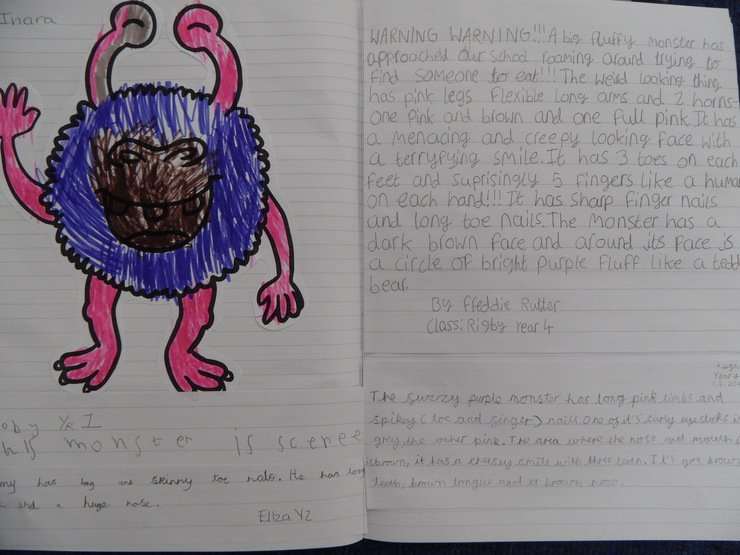 Inara
WARNING WARNING!!! A big fluffy monster has
approached our school roaming around trying to
find someone to eat!!! The weird looking thing
has pink legs flexible long arms and 2 horns-
one pink and brown and one full pink. It has
a menacing and creepy looking face with
a terryfying smile. It has 3 toes on each
feet and suprisingly 5 fingers like a human
on each hand!!! It has sharp finger nails
and long toe nails. The monster has a
dark brown face and around its face is
a circle of bright purple fluff like a tedd
bear.
By Freddie Rutter
Class: Rigby Year 4
Year 4
The purple monster has long pink limbs and
spikey (toe and finger) nails. One of it's curly eyestalks is
grey, the other pink. The area where the nose and mouth
is brown, it has a cheesy smile with three teeth. It's got brown
teeth, brown tongue and a brown nose.
oby Yr 1
his monster is
my has long skinny toe nails. He has long
and a huge nose.
Eliza Y2